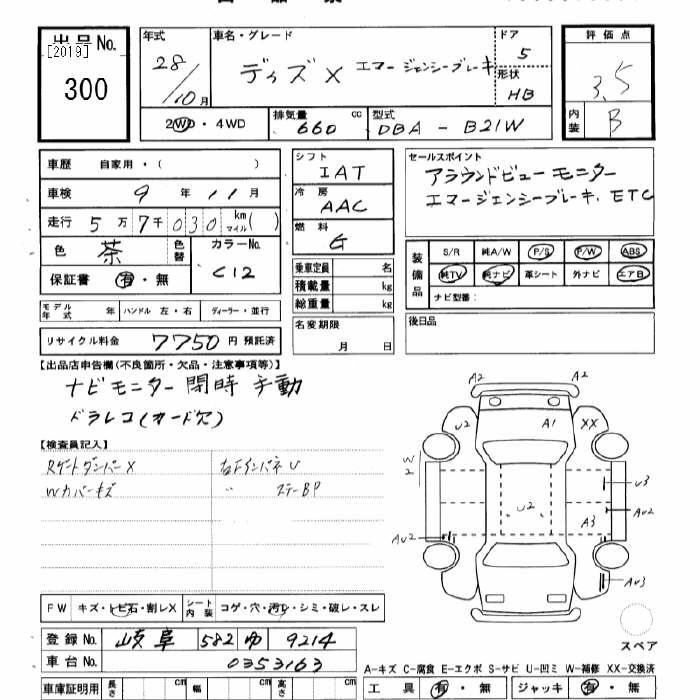 出品No.
[2019]
300
年式
28/10月
車名・グレード
デイズ X エマージェンシーブレーキ
ドア
5
形状
HB
評価点
3.5
内装
B
2WD・4WD
排気量 660 cc
型式 DBA-B21W
車歴 自家用・( )
車検 9年 11月
走行 5万7千030 km マイル( )
色 茶 色替
カラーNo. C12
保証書 有・無
シフト
IAT
冷房
AAC
燃料
G
乗車定員 名
積載量 kg
総重量 kg
セールスポイント
アラウンドビューモニター
エマージェンシーブレーキ、ETC
装備品
S/R 純A/W P/S P/W ABS
純TV 純ナビ 革シート 外ナビ エアB
ナビ型番:
モデル年式 年 ハンドル 左・右 ディーラー・並行
名変期限
月 日
後日品
リサイクル料金 7750円 預託済
【出品店申告欄(不良箇所・欠品・注意事項等)】
ナビモニター閉時手動
ドラレコ(カード欠)
【検査員記入】
Rゲートダンパー×
右Fインパネ U
Wカバーキズ
〃 ステーBP
A2 A2
U2 A1 XX
W2
U3
U2
AU2
A3
AU2
AU3
スペア
FW キズ・トビ石・割レX シート内装 コゲ・穴・汚レ・シミ・破レ・スレ
登録No. 岐阜 582 ゆ 9214
車台No. 0353163
A-キズ C-腐食 E-エクボ S-サビ U-凹ミ W-補修 XX-交換済
車庫証明用 長さ cm 幅 cm 高さ cm
工具 有・無 ジャッキ 有・無